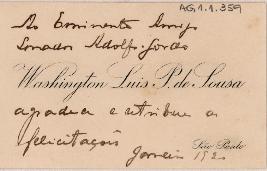 AG.1.1.359
Ao Eminente Amigo
Senador Adolfo Gordo
Washington Luis P. de Sousa
agradece e retribue as
felicitações
São Paulo
Janeiro 192